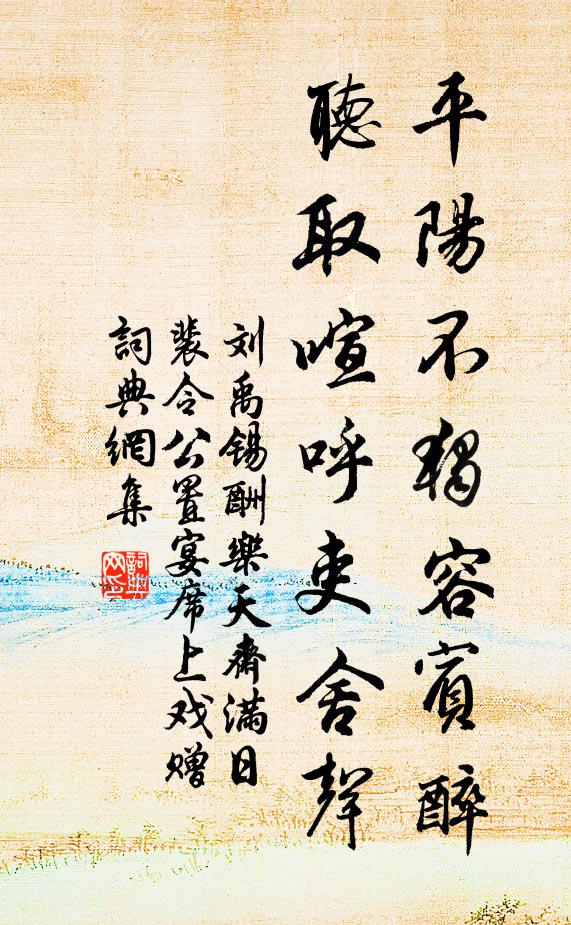 平陽不獨容賓醉
聽取喧呼吏舍聲
刘禹锡酬樂天齋滿日
裴令公置宴席上戏赠
詞典網集
詞典
网